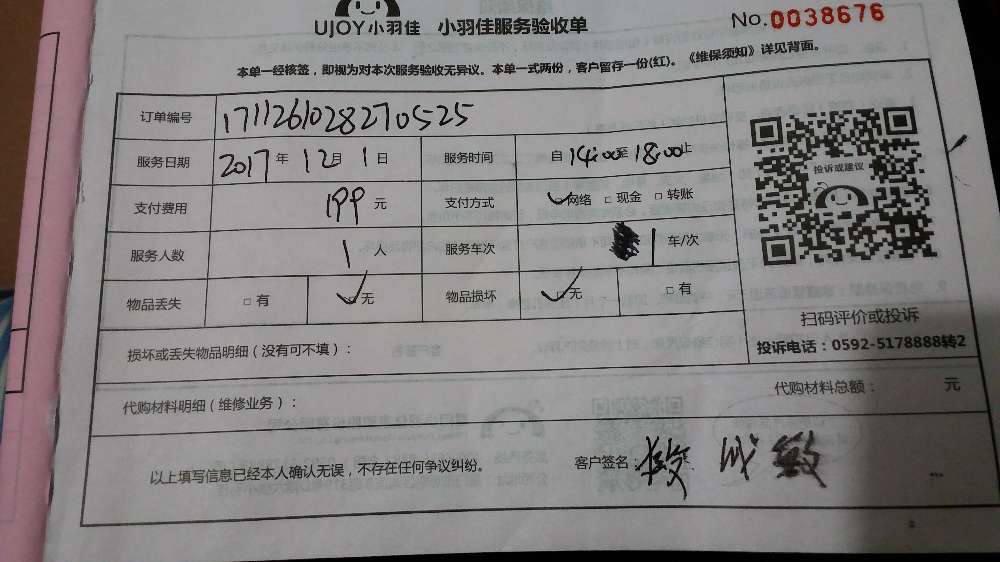 UJOY小羽佳 小羽佳服务验收单
No.0038676
本单一经核签，即视为对本次服务验收无异议。本单一式两份，客户留存一份(红)。《维保须知》详见背面。
订单编号 17112610282710525
服务日期 2017年12月1日 服务时间 自14:00至18:00止
支付费用 199元 支付方式 网络 现金 转账
服务人数 1人 服务车次 1车/次
物品丢失 有 无 物品损坏 无 有
投诉或建议
扫码评价或投诉
投诉电话：0592-5178888转2
损坏或丢失物品明细（没有可不填）：
代购材料明细（维修业务）：
代购材料总额： 元
以上填写信息已经本人确认无误，不存在任何争议纠纷。
客户签名：